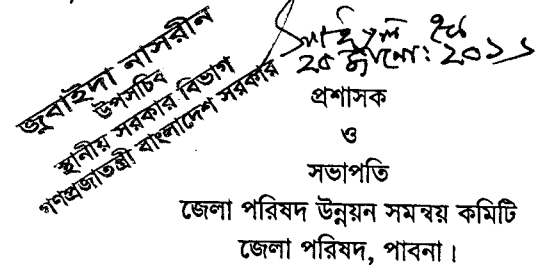 জুবাইদা নাসরীন
উপসচিব
স্থানীয় সরকার বিভাগ
গণপ্রজাতন্ত্রী বাংলাদেশ সরকার
প্রশাসক
ও
সভাপতি
জেলা পরিষদ উন্নয়ন সমন্বয় কমিটি
জেলা পরিষদ, পাবনা।